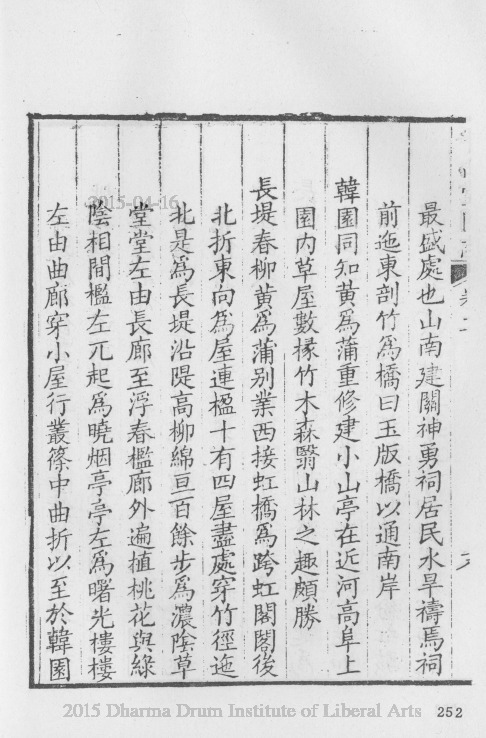 最盛處也山南建關神勇祠居民水旱禱焉祠
前迤東剖竹爲橋曰玉版橋以通南岸
韓園同知黄爲蒲重修建小山亭在近河高阜上
園内草屋數椽竹木森翳山林之趣頗勝
長堤春柳黄爲蒲别業西接虹橋爲跨虹閣閣後
北折東向爲屋連楹十有四屋盡處穿竹徑迤
北是爲長堤沿隄高柳綿亘百餘步爲濃陰草
堂堂左由長廊至浮春檻廊外遍植桃花與綠
陰相間檻左兀起爲曉烟亭亭左爲曙光樓樓
左由曲廊穿小屋行叢篠中曲折以至於韓園
2015-04-16
2015 Dharma Drum Institute of Liberal Arts 252